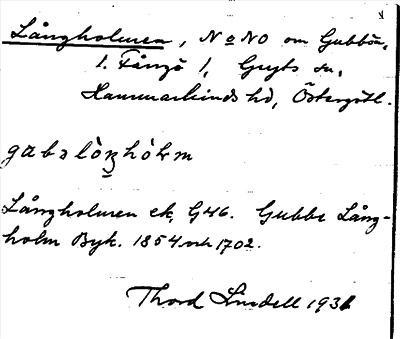 Långholmen, N o NO om Gubbön,
1. Fångö 1, Gryts sn,
Hammarkinds hd, Östergötl.
gabəlòŋhòlm
Långholmen ek. G46. Gubbe Lång-
holm Byk. 1854 och 1702.
Thord Lindell 1931